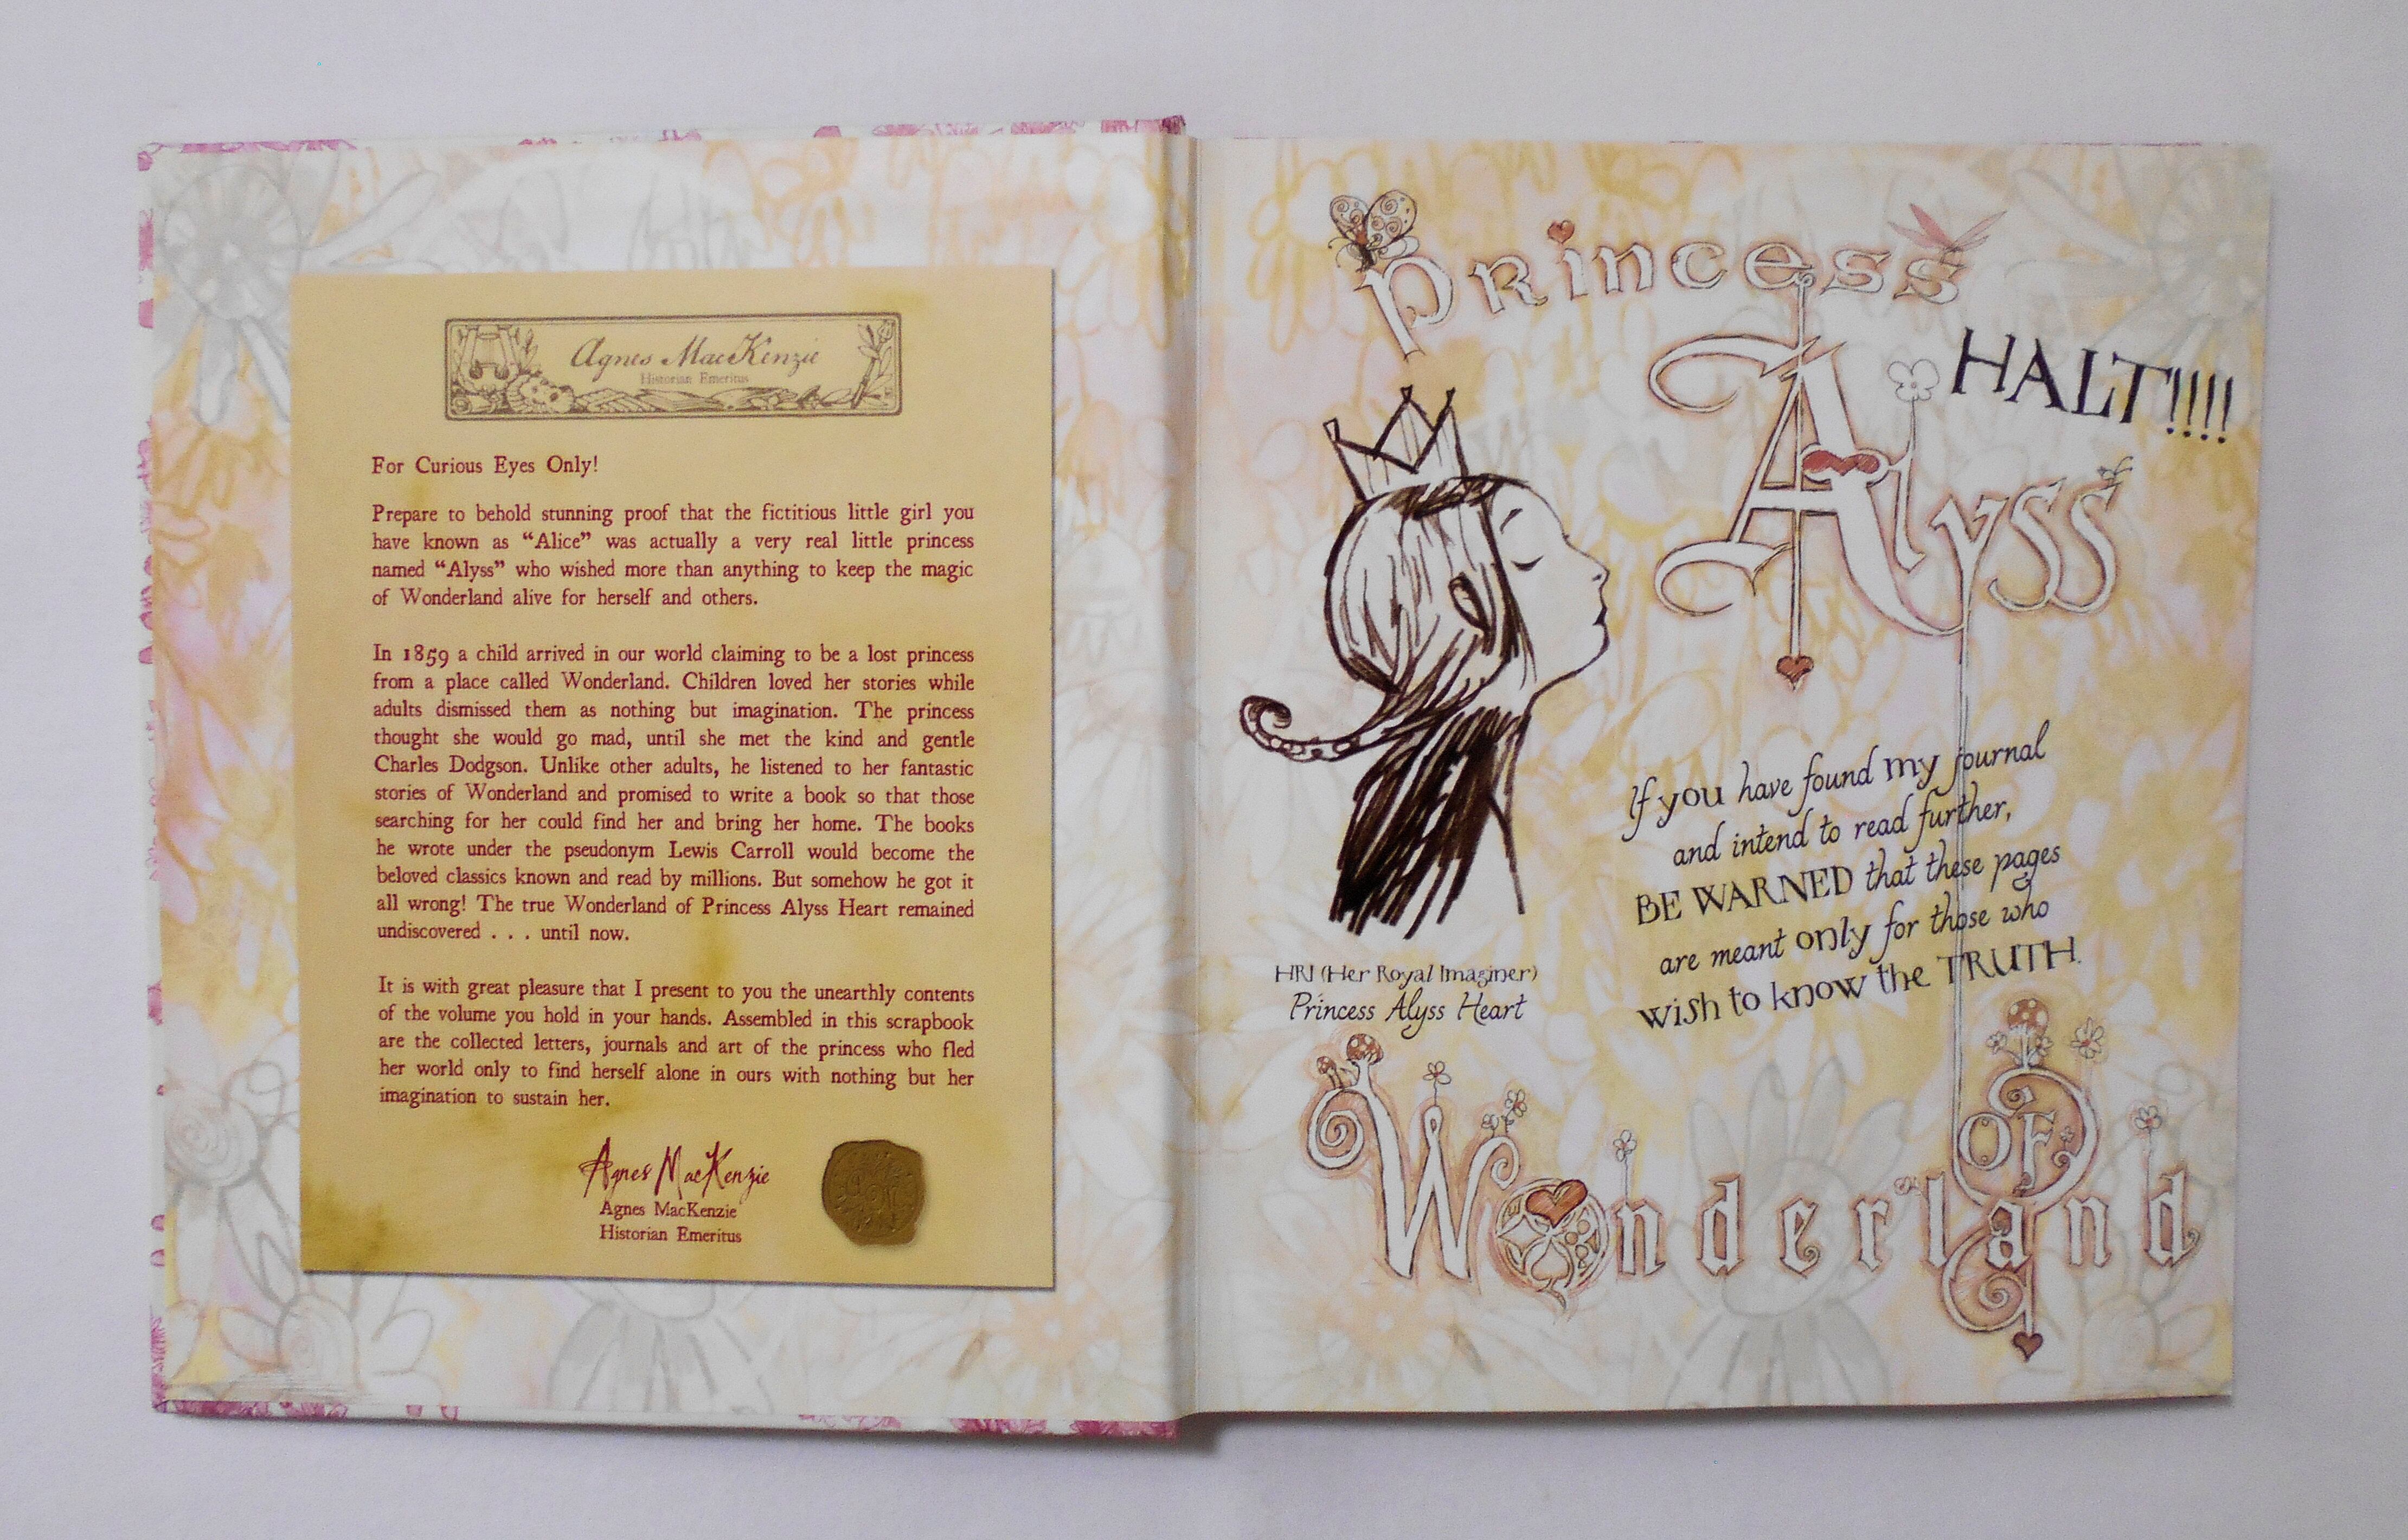 Agnes MacKenzie
Historian Emeritus
For Curious Eyes Only!
Prepare to behold stunning proof that the fictitious little girl you
have known as “Alice” was actually a very real little princess
named “Alyss” who wished more than anything to keep the magic
of Wonderland alive for herself and others.
In 1859 a child arrived in our world claiming to be a lost princess
from a place called Wonderland. Children loved her stories while
adults dismissed them as nothing but imagination. The princess
thought she would go mad, until she met the kind and gentle
Charles Dodgson. Unlike other adults, he listened to her fantastic
stories of Wonderland and promised to write a book so that those
searching for her could find her and bring her home. The books
he wrote under the pseudonym Lewis Carroll would become the
beloved classics known and read by millions. But somehow he got it
all wrong! The true Wonderland of Princess Alyss Heart remained
undiscovered . . . until now.
It is with great pleasure that I present to you the unearthly contents
of the volume you hold in your hands. Assembled in this scrapbook
are the collected letters, journals and art of the princess who fled
her world only to find herself alone in ours with nothing but her
imagination to sustain her.
Agnes MacKenzie
Agnes MacKenzie
Historian Emeritus
Princess
HALT!!!!
Alyss
If you have found my journal
and intend to read further,
BE WARNED that these pages
are meant only for those who
wish to know the TRUTH.
HRI (Her Royal Imaginer)
Princess Alyss Heart
OF
Wonderland